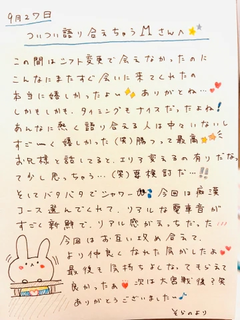 9月27日
ついつい語り合えちゃうMさんへ
この間はシフト変更で会えなかったのに
こんなにまたすぐ会いに来てくれたの
本当に嬉しかったよぉ ありがとね…
しかもしかも、タイミングもナイスだったよね!
あんなに熱く語り合える人は中々いないし
すごーく嬉しかった(笑)勝つって最高
お兄様と話してると、エリ変えるの有りだな
て少し思っちゃう…(笑)要検討だ…!!
そしてバタバタでシャワー 今回は痴漢
コース選んでくれて、リアルな電車音が
すごく新鮮で、リアル感がえっちだった…
今回はお互い攻め合えて、
より仲良くなれた気がしたよ
最後も気持ちよくなってもらえて
良かったぁ 次は大宮戦後で笑
ありがとうございました…♪
そらのより